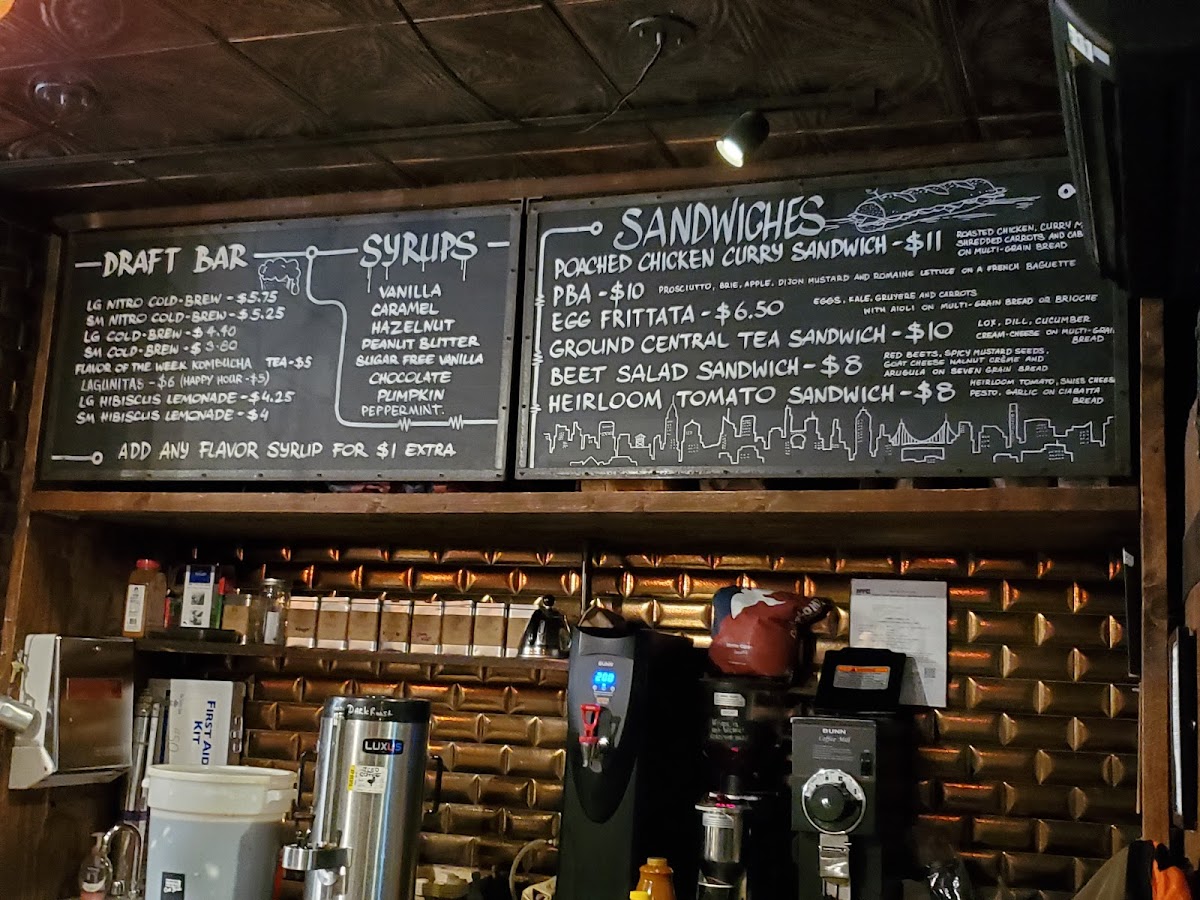 DRAFT BAR
LG NITRO COLD-BREW - $5.75
SM NITRO COLD-BREW - $5.25
LG COLD-BREW - $4.40
SM COLD-BREW - $3.80
FLAVOR OF THE WEEK KOMBUCHA TEA - $5
LAGUNITAS - $6 (HAPPY HOUR - $5)
LG HIBISCUS LEMONADE - $4.25
SM HIBISCUS LEMONADE - $4
SYRUPS
VANILLA
CARAMEL
HAZELNUT
PEANUT BUTTER
SUGAR FREE VANILLA
CHOCOLATE
PUMPKIN
PEPPERMINT.
ADD ANY FLAVOR SYRUP FOR $1 EXTRA
SANDWICHES
POACHED CHICKEN CURRY SANDWICH - $11
ROASTED CHICKEN, CURRY M
SHREDDED CARROTS AND CAB
ON MULTI-GRAIN BREAD
PBA - $10 PROSCIUTTO, BRIE, APPLE, DIJON MUSTARD AND ROMAINE LETTUCE ON A FRENCH BAGUETTE
EGG FRITTATA - $6.50
EGGS, KALE, GRUYERE AND CARROTS
WITH AIOLI ON MULTI-GRAIN BREAD OR BRIOCHE
GROUND CENTRAL TEA SANDWICH - $10
LOX, DILL, CUCUMBER
CREAM-CHEESE ON MULTI-GRAIN
BREAD
BEET SALAD SANDWICH - $8
RED BEETS, SPICY MUSTARD SEEDS,
GOAT CHEESE WALNUT CRÈME AND
ARUGULA ON SEVEN GRAIN BREAD
HEIRLOOM TOMATO SANDWICH - $8
HEIRLOOM TOMATO, SWISS CHEESE
PESTO, GARLIC ON CIABATTA
BREAD
FIRST AID
KIT
Dark Roast
LUXUS
BUNN
200
NYC
BUNN
Coffee Mill